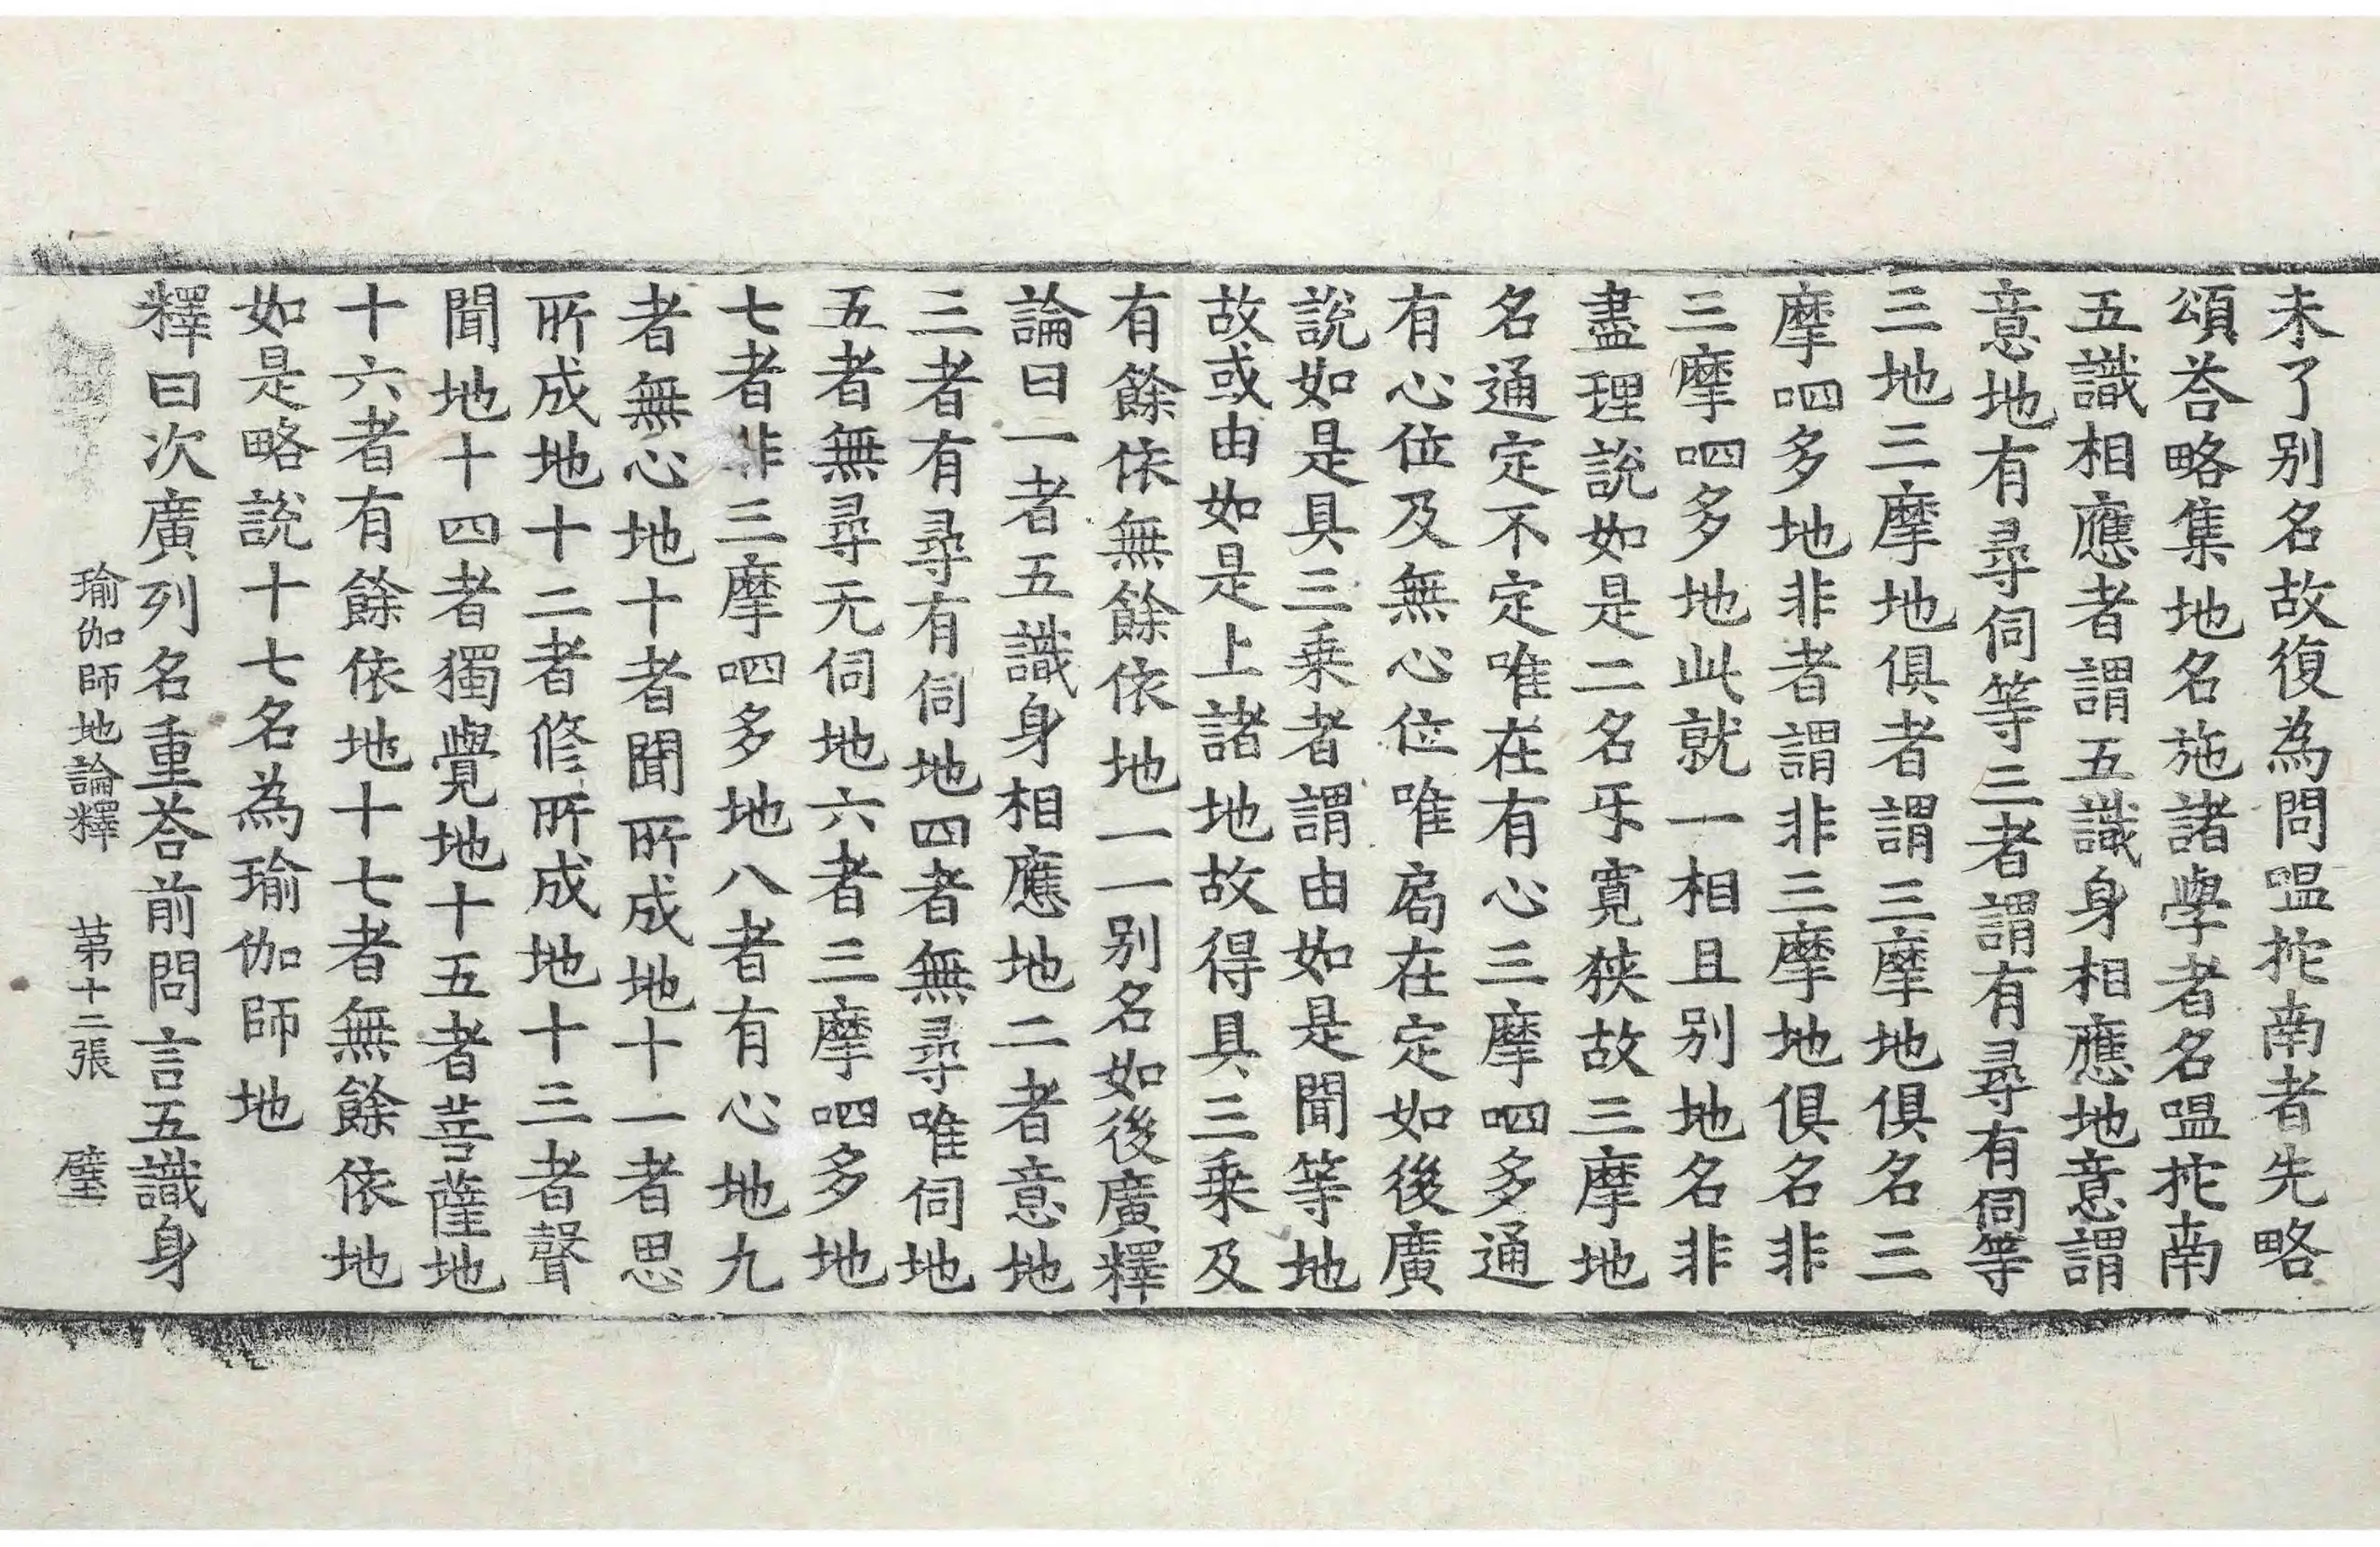 未了别名故復為問嗢拕南者先略
頌荅略集地名施諸學者名嗢拕南
五識相應者謂五識身相應地意謂
意地有尋伺等三者謂有尋有伺等
三地三摩地俱者謂三摩地俱名三
摩呬多地非者謂非三摩地俱名非
三摩呬多地此就一相且别地名非
盡理說如是二名㸦寬狹故三摩地
名通定不定唯在有心三摩呬多通
有心位及無心位唯局在定如後廣
說如是具三乗者謂由如是聞等地
故或由如是上諸地故得具三乗及
有餘依無餘依地一一别名如後廣釋
論曰一者五識身相應地二者意地
三者有尋有伺地四者無尋唯伺地
五者無尋无伺地六者三摩呬多地
七者非三摩呬多地八者有心地九
者無心地十者聞所成地十一者思
所成地十二者修所成地十三者聲
聞地十四者獨覺地十五者菩薩地
十六者有餘依地十七者無餘依地
如是略說十七名為瑜伽師地
釋曰次廣列名重荅前問言五識身
瑜伽師地論釋 苐十二張 璧